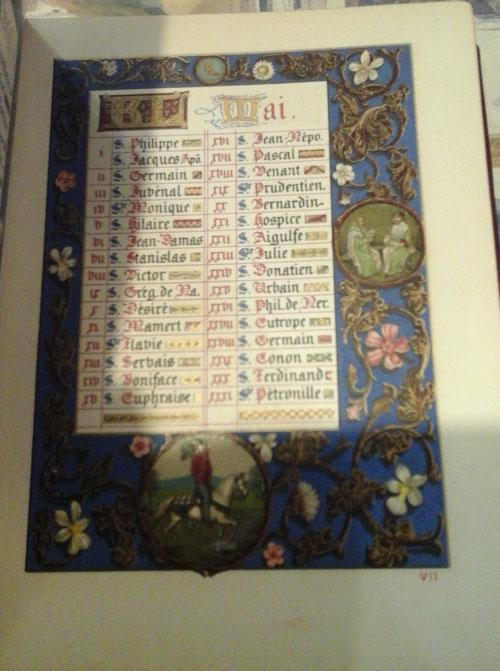 Mai.
I S. Philippe
S. Jacques Apô.
II S. Germain
III S. Juvénal
IV Ste Monique
V S. Hilaire
VI S. Jean-Damas
VII S. Stanislas
VIII S. Victor
IX S. Grég. de Na.
X S. Désiré
XI S. Mamert
XII Ste Flavie
XIII S. Servais
XIV S. Boniface
XV S. Euphraise
XVI S. Jean-Népo.
XVII S. Pascal
XVIII S. Venant
XIX Ste Prudentien.
XX S. Bernardin-
XXI S. Hospice
XXII S. Aigulfe
XXIII Ste Julie
XXIV S. Donatien
XXV S. Urbain
XXVI S. Phil. de Ner.
XXVII S. Eutrope
XXVIII S. Germain
XXIX S. Conon
XXX S. Ferdinand
XXXI Ste Pétronille
VII